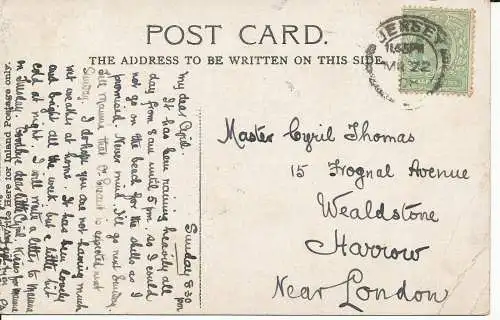 POST CARD.
THE ADDRESS TO BE WRITTEN ON THIS SIDE.
JERSEY
11.45PM
MR 22
Master Cyril Thomas
15 Frognal Avenue
Wealdstone
Harrow
Near London
Sunday 8.30 pm
My dear Cyril.
It has been raining heavily all
day from 8 am until 5 pm. so I could
not go on the beach for the shells as I
promised. Never mind I'll go next Sunday.
Tell Mamma that is expected next
Sunday. I do hope you are not having much
wet weather at home. It has been lovely
and bright all the week, but a little bit
cold at night. I will write a letter to Mamma
on Tuesday. Goodbye dear little Cyril. Kisses for Mamma
Write Here for Inland Postage only.